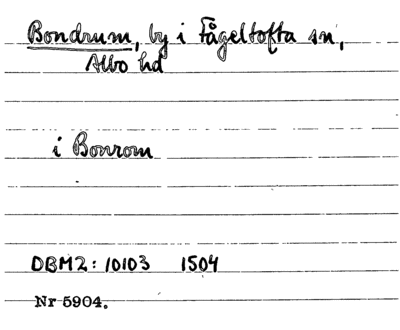 Bondrum, by i Fågeltofta sn,
Albo hd
i Bonrom
DBM2: 10103 1504
Nr 5904.